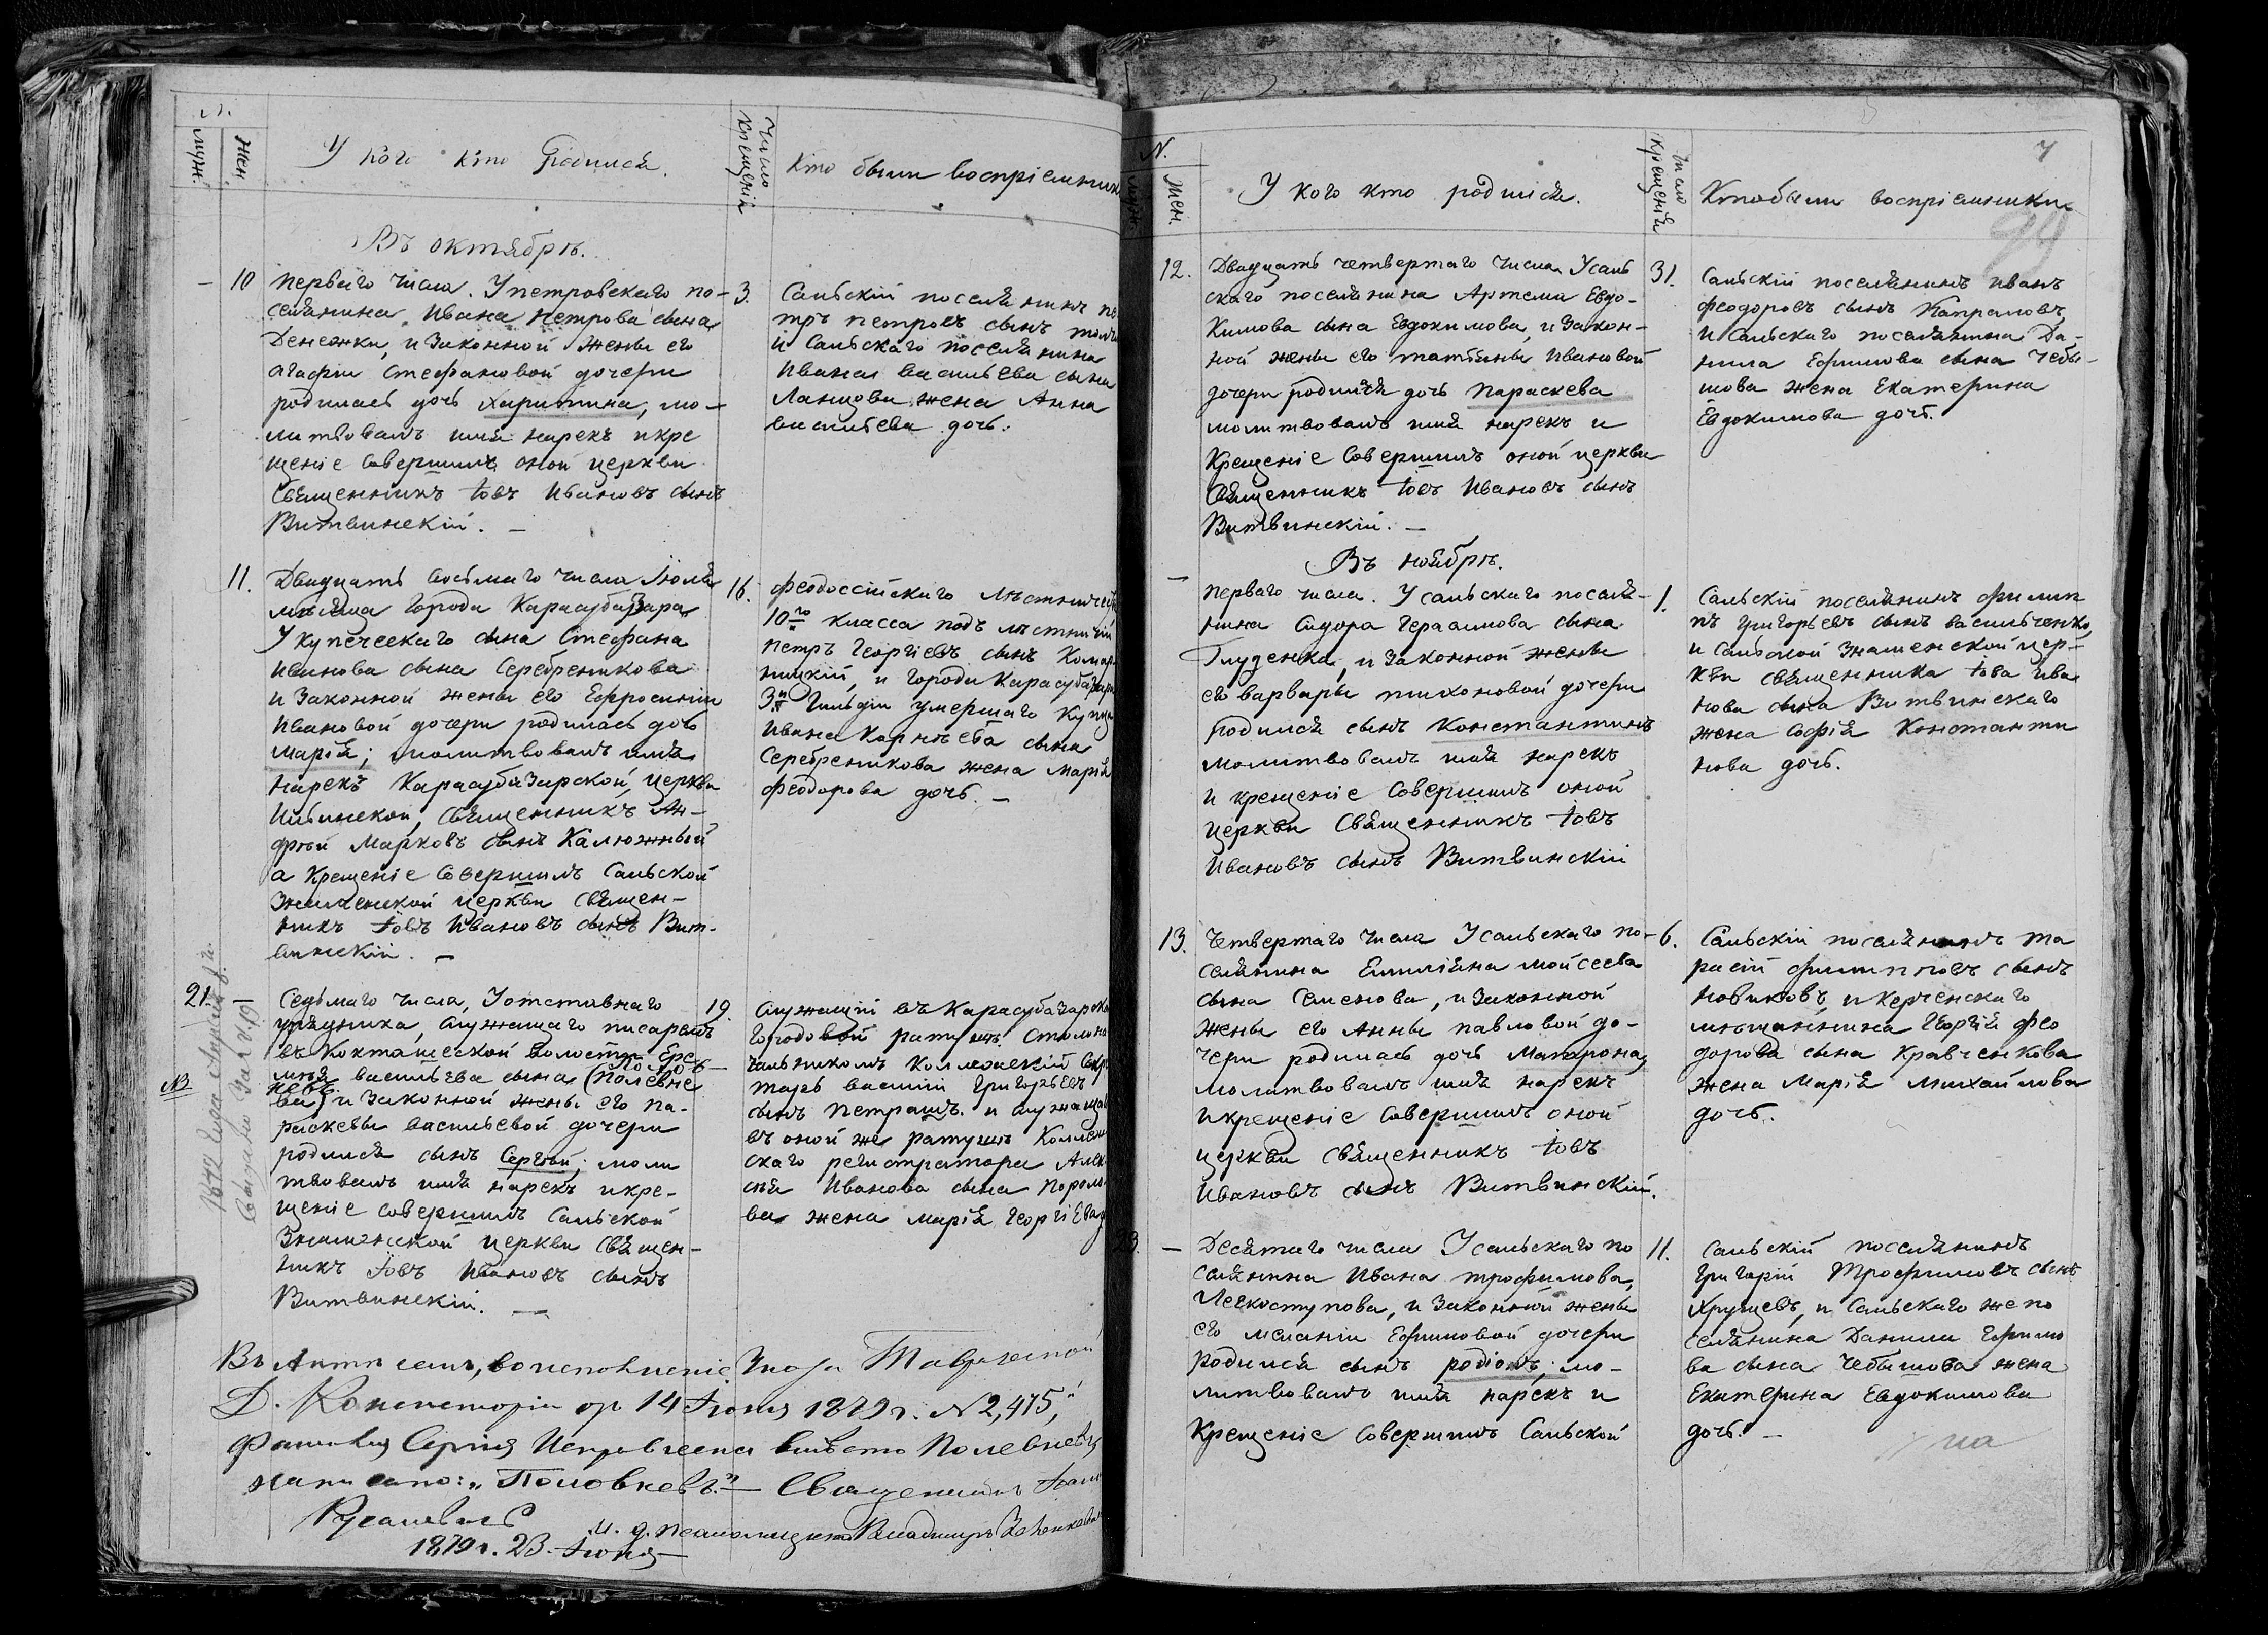 N.
муж.
жен.
У кого кто родился.
Число крещенія
Кто были воспріемник
Въ октябрѣ.
— 10
перваго числа. У петровскаго по-
селянина Ивана петрова сына
Денежки, и законной жены его
агафіи стефановой дочери
родилась дочь харитина, мо-
литвовалъ имя нарекъ и кре
щеніе совершилъ оной церкви
Священникъ Іовъ Ивановъ сынъ
Витвинскій. —
3.
Сальскій поселянинъ пе
тръ петровъ сынъ
и Сальскаго поселянина
Ивана васильева сына
Ланцова жена Анна
васильева дочь.
11.
Двадцать восьмаго числа Іюля
мѣсяца города Карасубазара
У купеческаго сына Стефана
иванова сына Серебреникова
и законной жены его Ефросиніи
Ивановой дочери родилась дочь
марія; молитвовалъ имя
нарекъ Карасубазарской церкви
Ильинской, священникъ Ан-
дрей Марковъ сынъ Калюжный
а крещеніе совершилъ Сальской
Знаменской церкви священ-
никъ Іовъ Ивановъ сынъ Вит-
винскій. —
16.
феодосійскаго лѣсничес
10го класса подъ лѣсничій
петръ георгіевъ сынъ Комар
ницкій, и города Карасубазара
3й гильдіи умершаго купца
Ивана Корнѣева сына
Серебреникова жена марія
феодорова дочь. —
21. —
Седьмаго числа, У отставнаго
урядника, служащаго писаремъ
въ Кокташской волости Ере
Половневъ
мѣя васильева сына (Полевне
ва) и законной жены его па-
раскевы васильевой дочери
родился сынъ Сергѣй; моли
твовалъ имя нарекъ и кре-
щеніе совершилъ Сальской
Знаменской церкви священ-
никъ Іовъ Ивановъ сынъ
Витвинскій. —
NB
19.
Служащій въ Карасубазарско
городовой ратушѣ столона
чальникомъ коллежскій секре
тарь василій григорьевъ
сынъ петрашъ. и служащаго
въ оной же ратушѣ Коллеж
скаго регистратора Алек
сѣя Иванова сына
ва жена марія георгіева
Въ Актѣ семъ, во исполненіе Указа Таврической
Д. Консисторіи от 14 Іюня 1879 г. № 2,475,
фамилія Сергія исправлена вмѣсто Полевнева
написано: „Половневъ." — Священникъ
Русаневичъ
и. д. псаломщика Владиміръ
1879 г. 23 Іюня
N.
муж.
жен.
У кого кто родился.
Число крещенія
Кто были воспріемники
7
99
12.
Двадцать четвертаго числа. У саль
скаго поселянина Артема Евдо-
кимова сына Евдокимова, и закон-
ной жены его татьяны Ивановой
дочери родилась дочь параскева
молитвовалъ имя нарекъ и
крещеніе совершилъ оной церкви
Священникъ Іовъ Ивановъ сынъ
Витвинскій. —
31.
Сальскій поселянинъ иванъ
феодоровъ сынъ Капраловъ,
и Сальскаго поселянина Да-
нила Ефимова сына Чебы-
шова жена Екатерина
Евдокимова дочь.
Въ ноябрѣ.
—
перваго числа. У сальскаго поселя-
нина Сидора Герасимова сына
Глуденка, и законной жены
его варвары тихоновой дочери
родился сынъ Константинъ
молитвовалъ имя нарекъ
и крещеніе совершилъ оной
церкви священникъ Іовъ
Ивановъ сынъ Витвинскій
1.
Сальскій поселянинъ филип
пъ григорьевъ сынъ васильченко,
и Сальской Знаменской цер-
кви священника Іова Ива
нова сына Витвинскаго
жена софія Константи
нова дочь.
13.
Четвертаго числа У сальскаго по-
селянина Емиліяна мойсеева
сына Семенова, и законной
жены его Анны павловой до-
чери родилась дочь матрона,
молитвовалъ имя нарекъ
и крещеніе совершилъ оной
церкви священникъ Іовъ
Ивановъ сынъ Витвинскій.
6.
Сальскій поселянинъ та
расій филиповъ сынъ
новиковъ, и керченскаго
мѣщанина георгія фео
дорова сына Кравченкова
жена Марія михайлова
дочь.
23. —
Десятаго числа У сальскаго по
селянина Ивана трофимова,
Легкоступова, и законной жены
его меланіи Ефимовой дочери
родился сынъ родіонъ, мо-
литвовалъ имя нарекъ и
крещеніе совершилъ Сальской
11.
Сальскій поселянинъ
григорій трофимовъ сынъ
Хрущевъ, и Сальскаго же по
селянина Данилы Ефимо
ва сына Чебышова жена
Екатерина Евдокимова
дочь. —